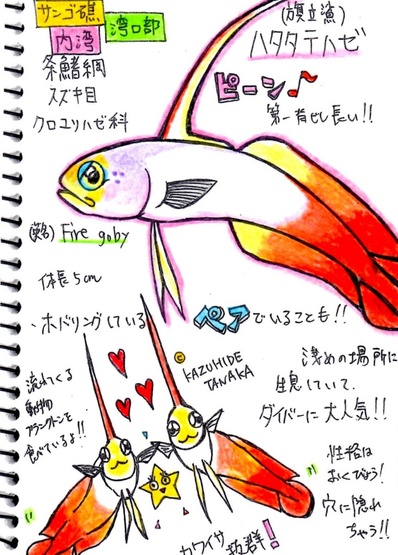 サンゴ礁
内湾
湾口部
条鰭綱
スズキ目
クロユリハゼ科
(旗立漁)
ハタタテハゼ
ピーン♪
第一背ビレ長い!!
(英名) Fire goby
体長5cm
・ホバリングしている
ペアでいることも!!
© KAZUHIDE TANAKA
流れてくる
動物
プランクトンを
食べているよ!!
浅めの場所に
生息していて、
ダイバーに大人気!!
性格は
おくびょう!
穴に隠れ
ちゃう!!
カワイサ抜群!